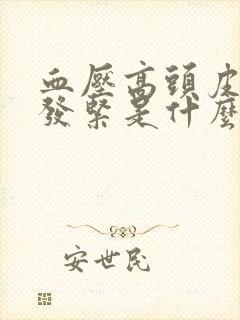 血壓高頭皮
發緊是什麼
安世民